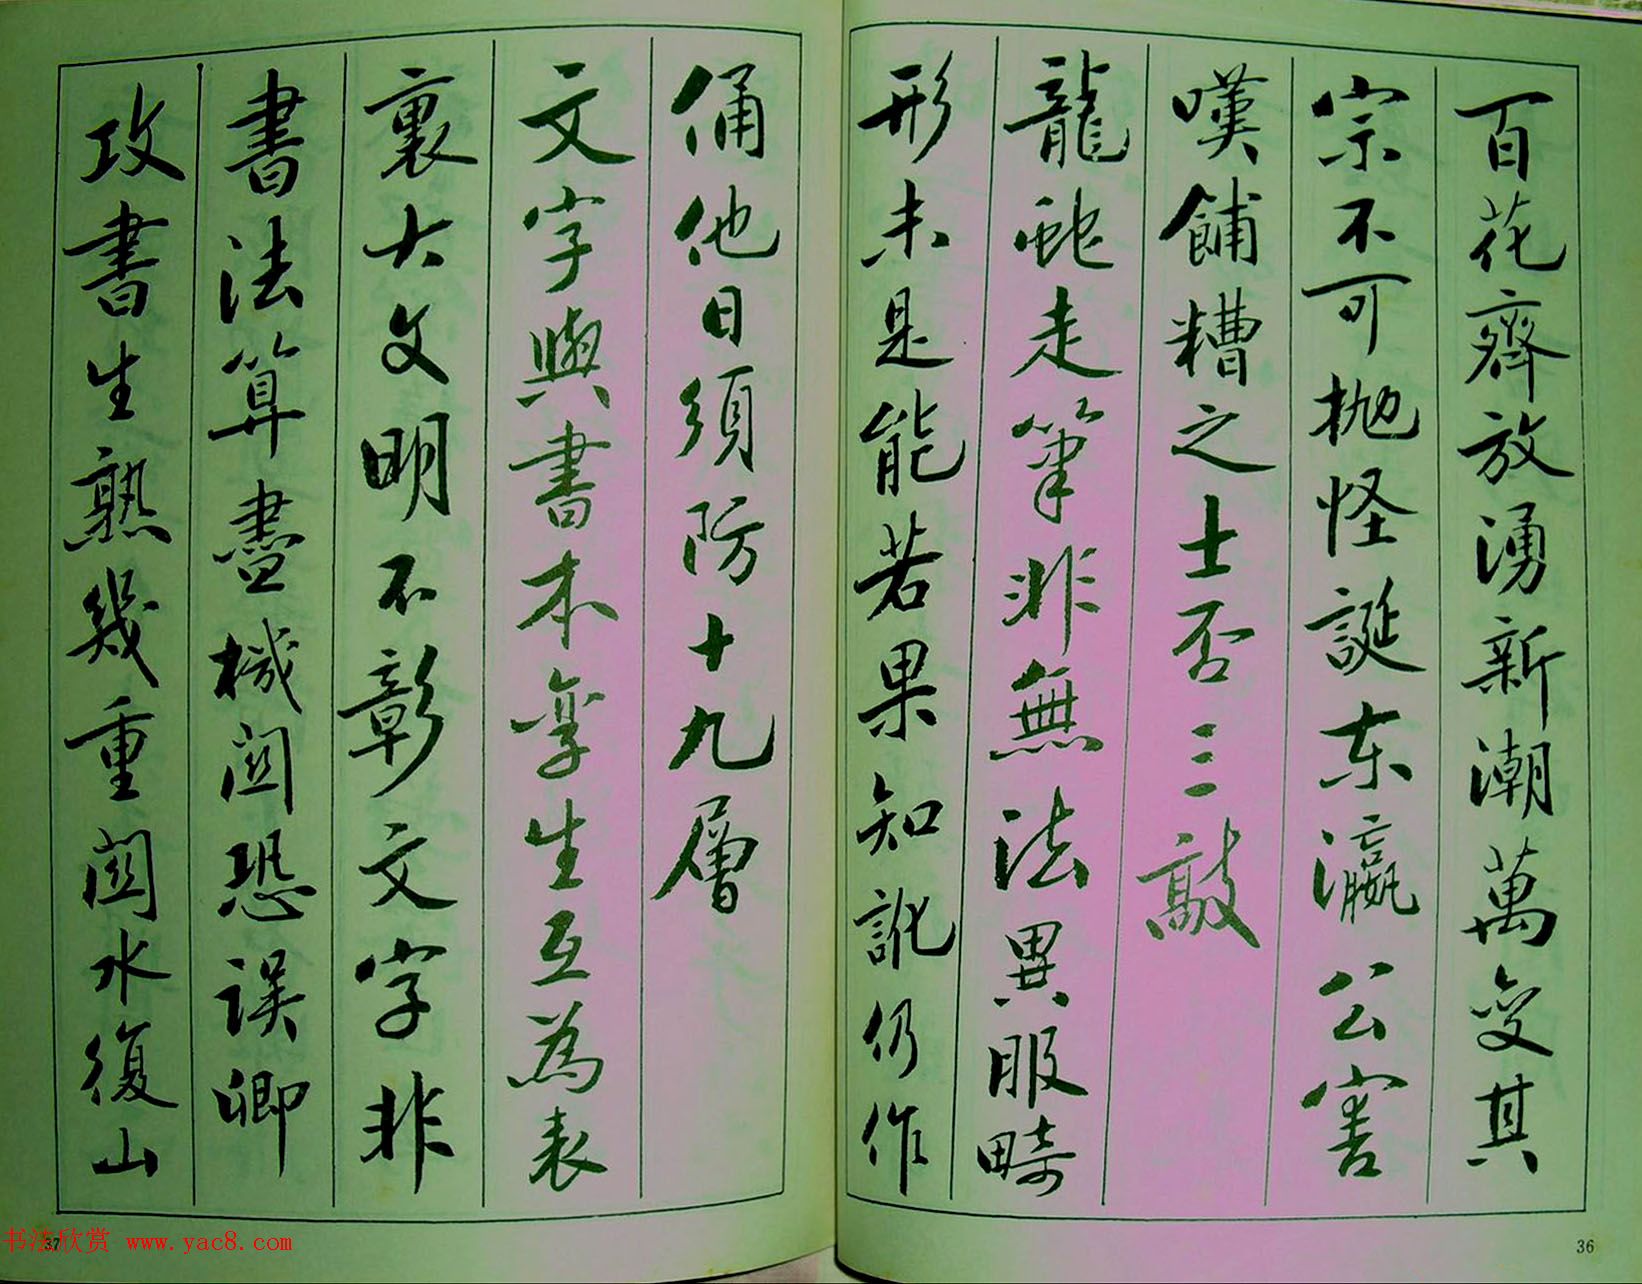 百花齊放湧新潮萬变其
宗不可抛怪誕东瀛公害
嘆餔糟之士否三敲
龍蛇走筆非無法異服畸
形未是能若果知訛仍作
俑他日須防十九層
文字與書本孪生互為表
裏大文明不彰文字非
書法算盡機関恐误卿
攻書生熟幾重関水復山
36
书法欣赏 www.yac8.com
37